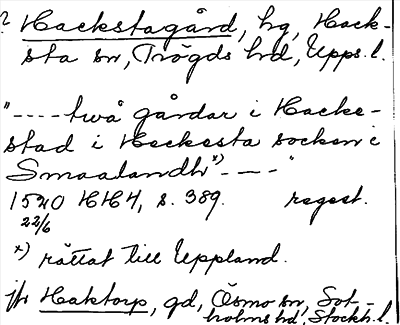 ? Hackstagård, hg, Hack-
sta sn, Trögds hd, Upps. l.
"---- twå gårdar i Hacke-
stad i Heckesta socken i
Smaalandh x) - - - "
1520 HH4, s. 389. regest.
22/6
x) rättat till Uppland.
jfr Haktorp, gd, Ösmo sn, Sot-
holms hd, Stockh. l.